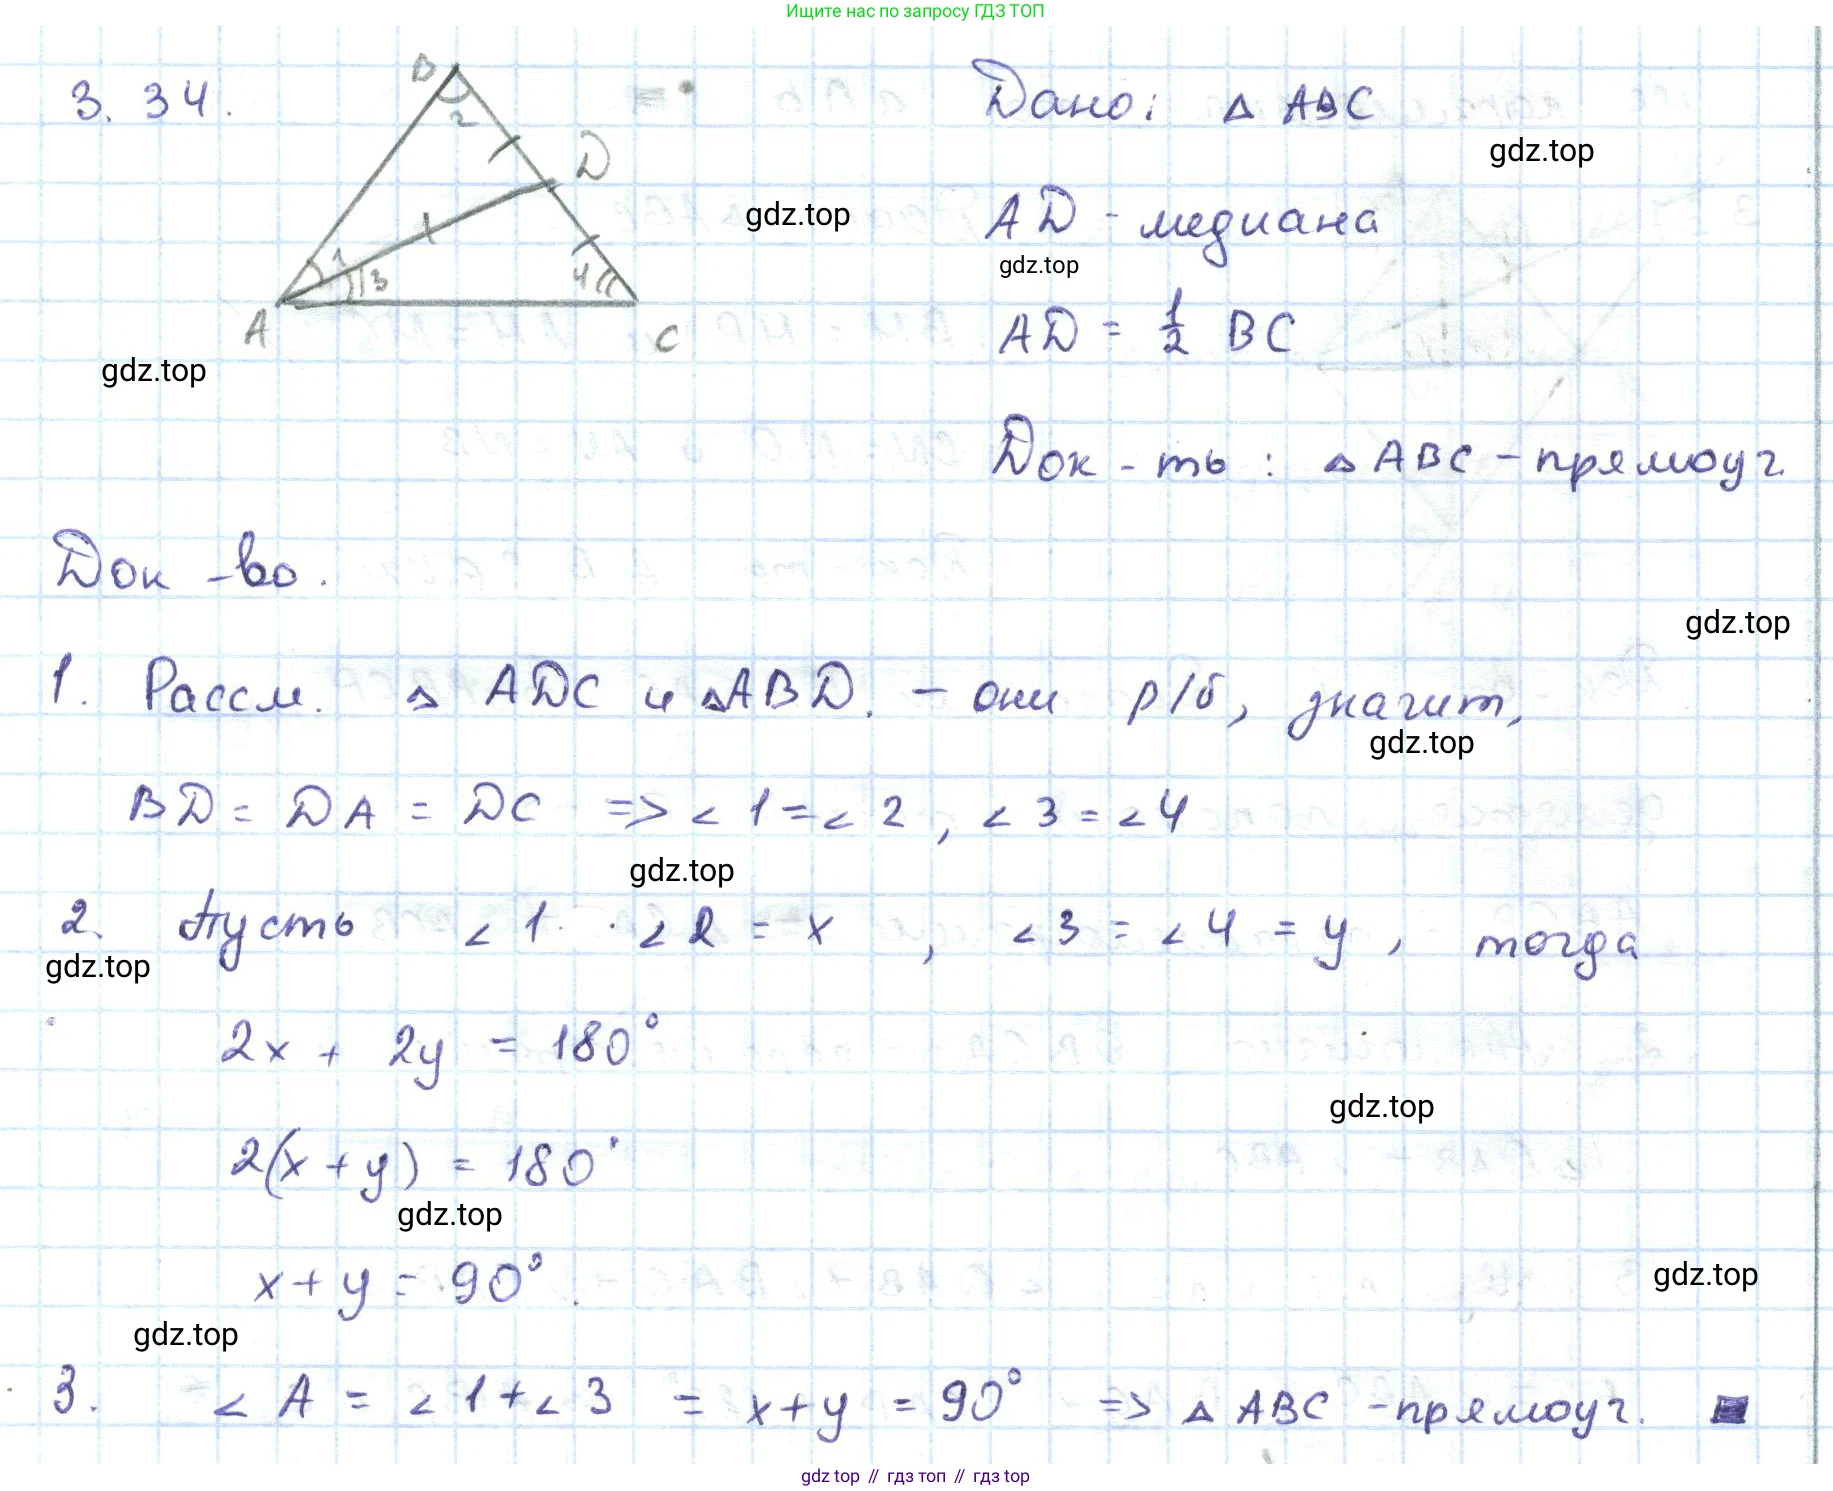 Ищите нас по запросу ГДЗ ТОП
3.34.
B
2
D
1
3
4
A
C
Дано: △ ABC
gdz.top
gdz.top
AD - медиана
gdz.top
AD = 1/2 BC
gdz.top
Док-ть: △ ABC - прямоуг.
Док-во.
gdz.top
1. Рассм. △ ADC и △ABD. - они р/б, значит,
gdz.top
BD = DA = DC => ∠1 = ∠2, ∠3 = ∠4
gdz.top
2. Пусть ∠1 · ∠2 = x, ∠3 = ∠4 = y, тогда
gdz.top
2x + 2y = 180°
gdz.top
2(x + y) = 180°
gdz.top
x + y = 90°.
gdz.top
gdz.top
3. ∠A = ∠1 + ∠3 = x + y = 90° => △ ABC - прямоуг.
gdz top // гдз топ // гдз top